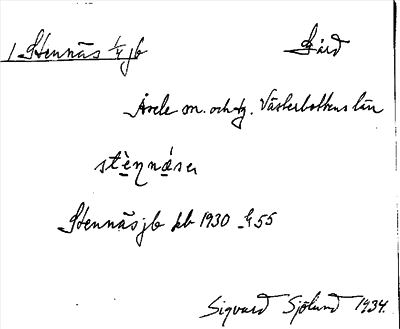 1 Stennäs 1/4 jb Gård
Åsele sn. och tg. Västerbottens län
stèṇná̱sẹr
Stennäs jb jb 1930 s. 55
Sigvard Sjölund 1934.